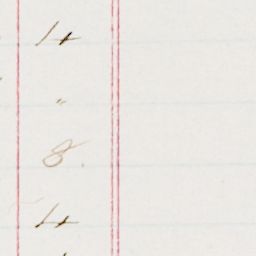 14
"
8.
14